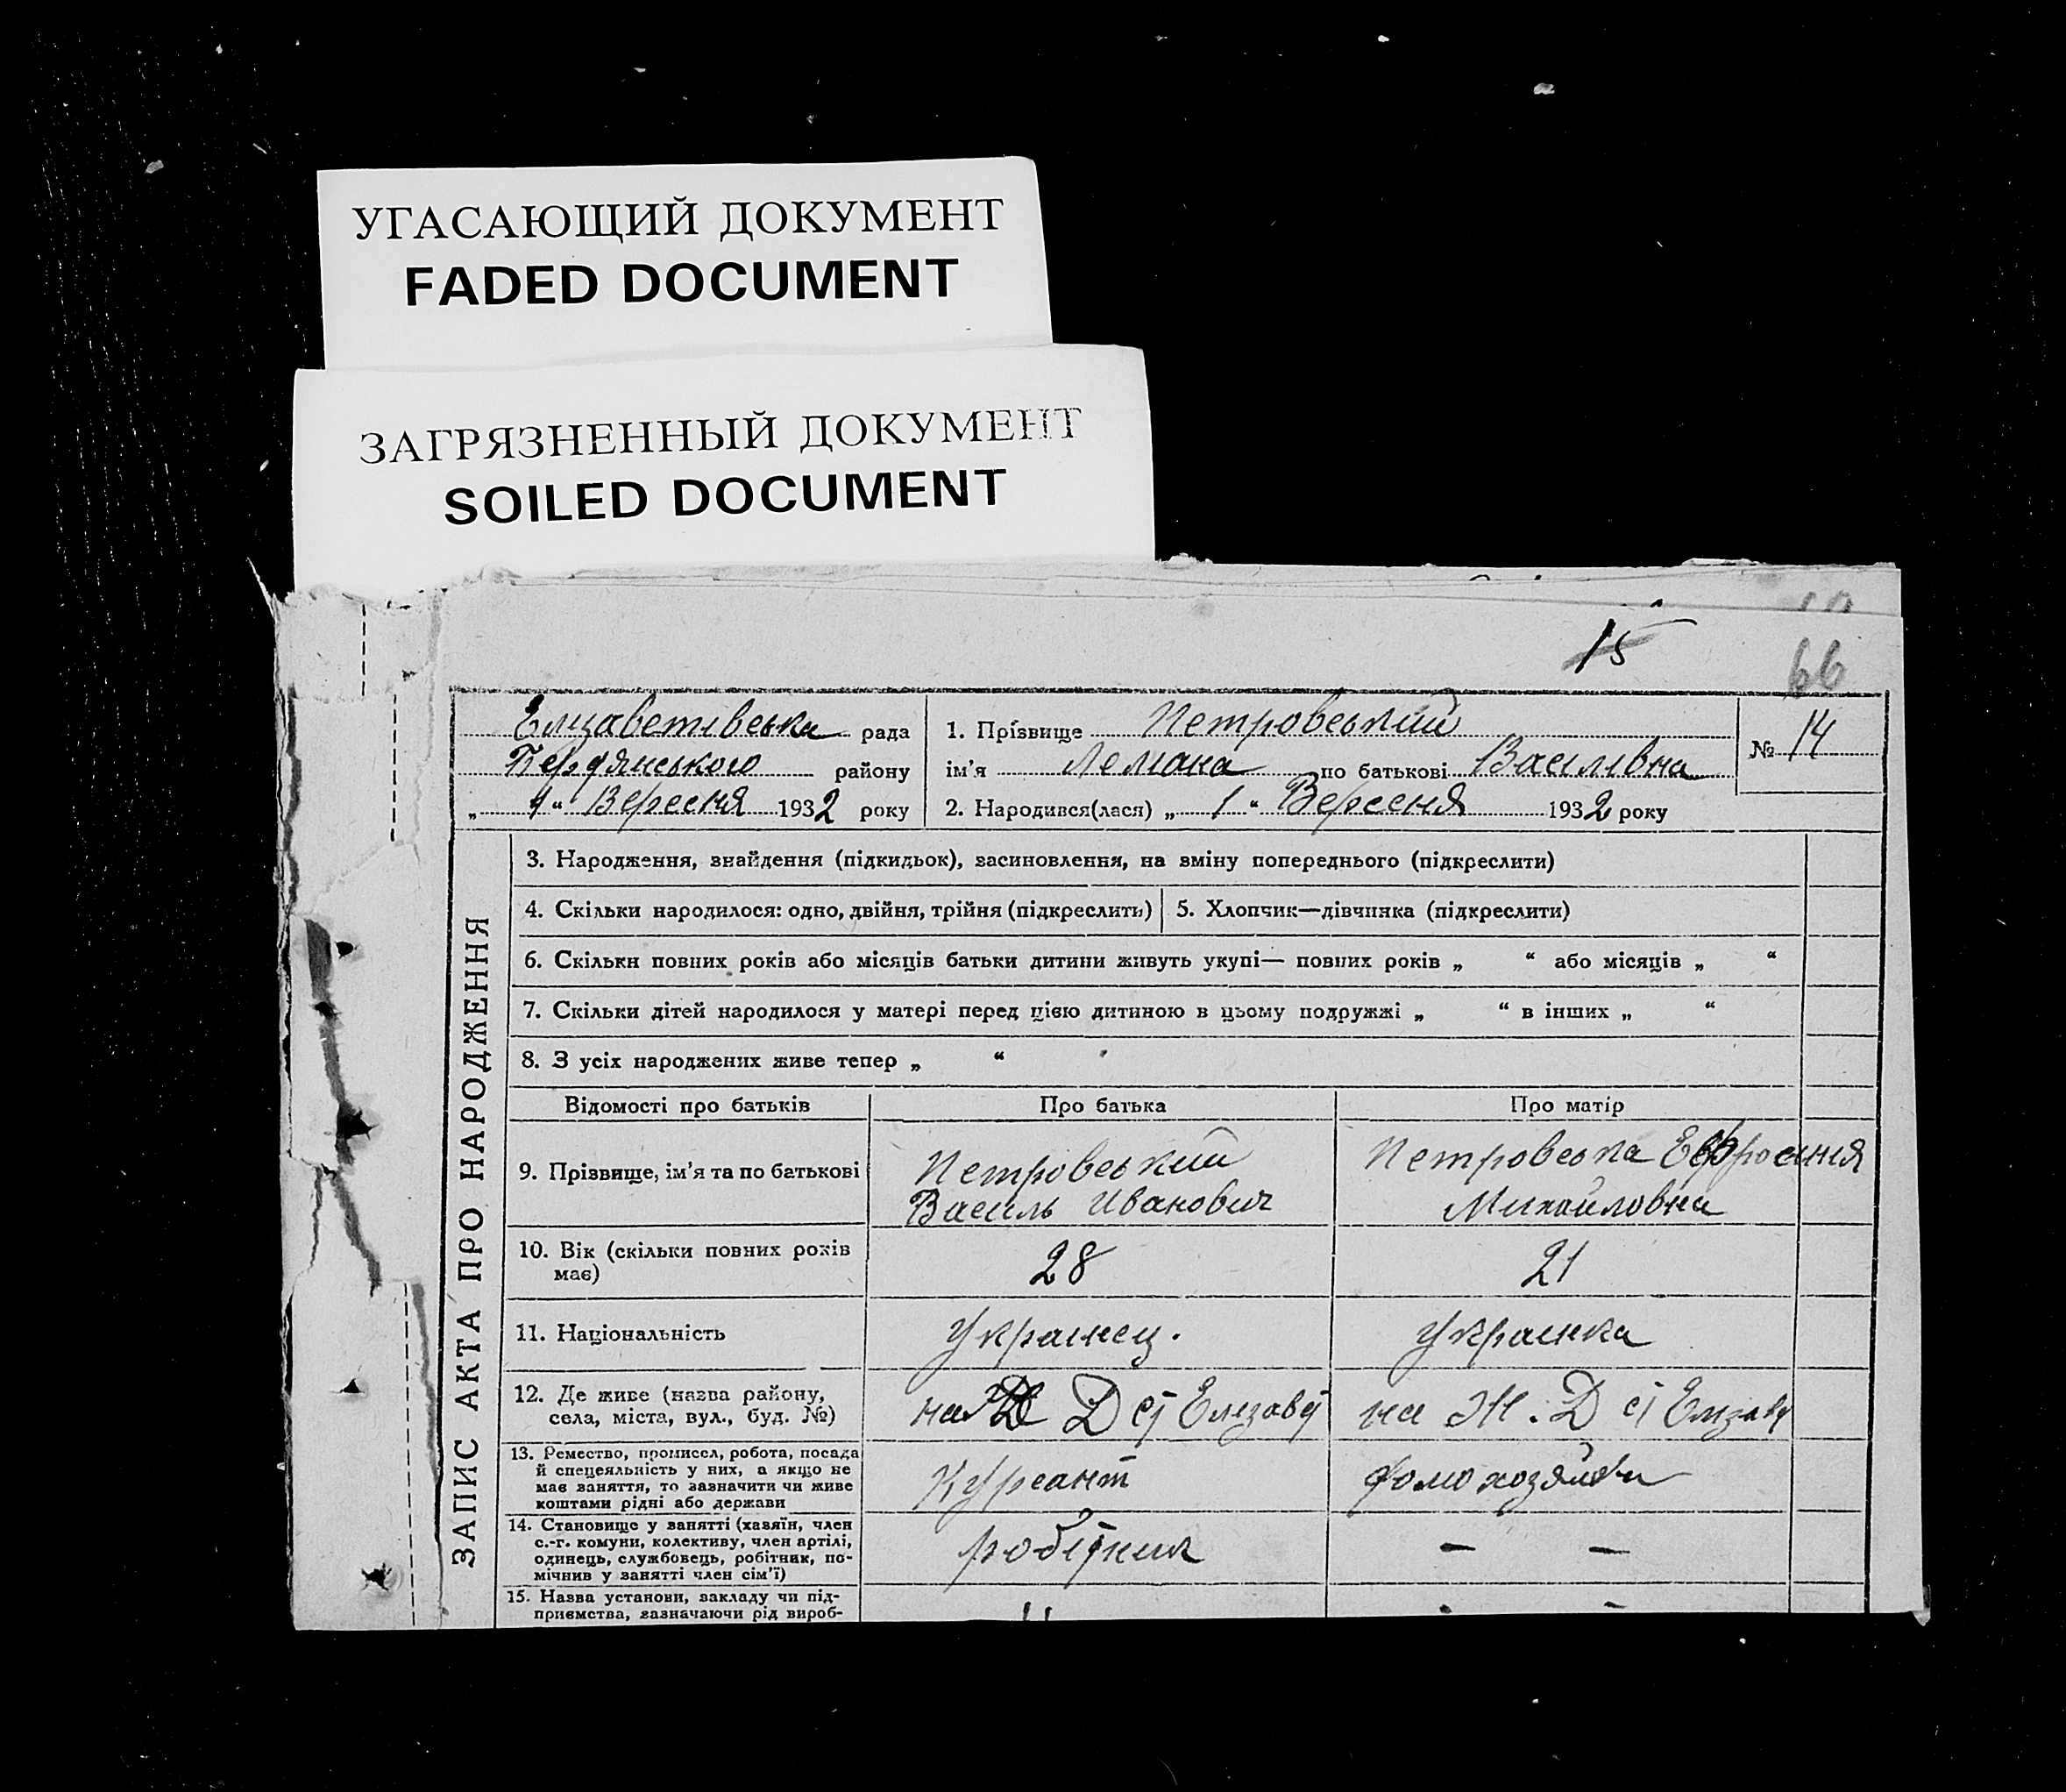 УГАСАЮЩИЙ ДОКУМЕНТ
FADED DOCUMENT
ЗАГРЯЗНЕННЫЙ ДОКУМЕНТ
SOILED DOCUMENT
15
66
Елизаветівська рада
Бердянського району
„ 4 “ Вересня 1932 року
1. Прізвище Петровський
ім’я по батькові Василівна
2. Народився(лася) „ 1 “ Вересня 1932 року
№ 14
ЗАПИС АКТА ПРО НАРОДЖЕННЯ
3. Народження, знайдення (підкидьок), засиновлення, на зміну попереднього (підкреслити)
4. Скільки народилося: одно, двійня, трійня (підкреслить) 5. Хлопчик—дівчинка (підкреслити)
6. Скільки повних років або місяців батьки дитини живуть укупі— повних років „ “ або місяців „ “
7. Скільки дітей народилося у матері перед цією дитиною в цьому подружжі „ “ в інших „ “
8. З усіх народжених живе тепер „ “
Відомості про батьків Про батька Про матір
9. Прізвище, ім’я та по батькові
Петровський
Василь Иванович
Петровська Евфросиния
Михайловна
10. Вік (скільки повних років
має)
28
21
11. Національність
Украинец.
Украинка
12. Де живе (назва району,
села, міста, вул., буд. №)
на Д ст Елезавет
на Ж.Д ст Елизав
13. Ремество, промисел, робота, посада
й спецеяльність у них, а якщо не
має заняття, то зазначити чи живе
коштами рідні або держави
Курсант
домохозяйка
14. Становище у занятті (хазяїн, член
с.-г. комуни, колективу, член артілі,
одинець, службовець, робітник, по-
мічнив у занятті член сім’ї)
робітник
— —
15. Назва установи, закладу чи під-
приємства, зазначаючи рід вироб-